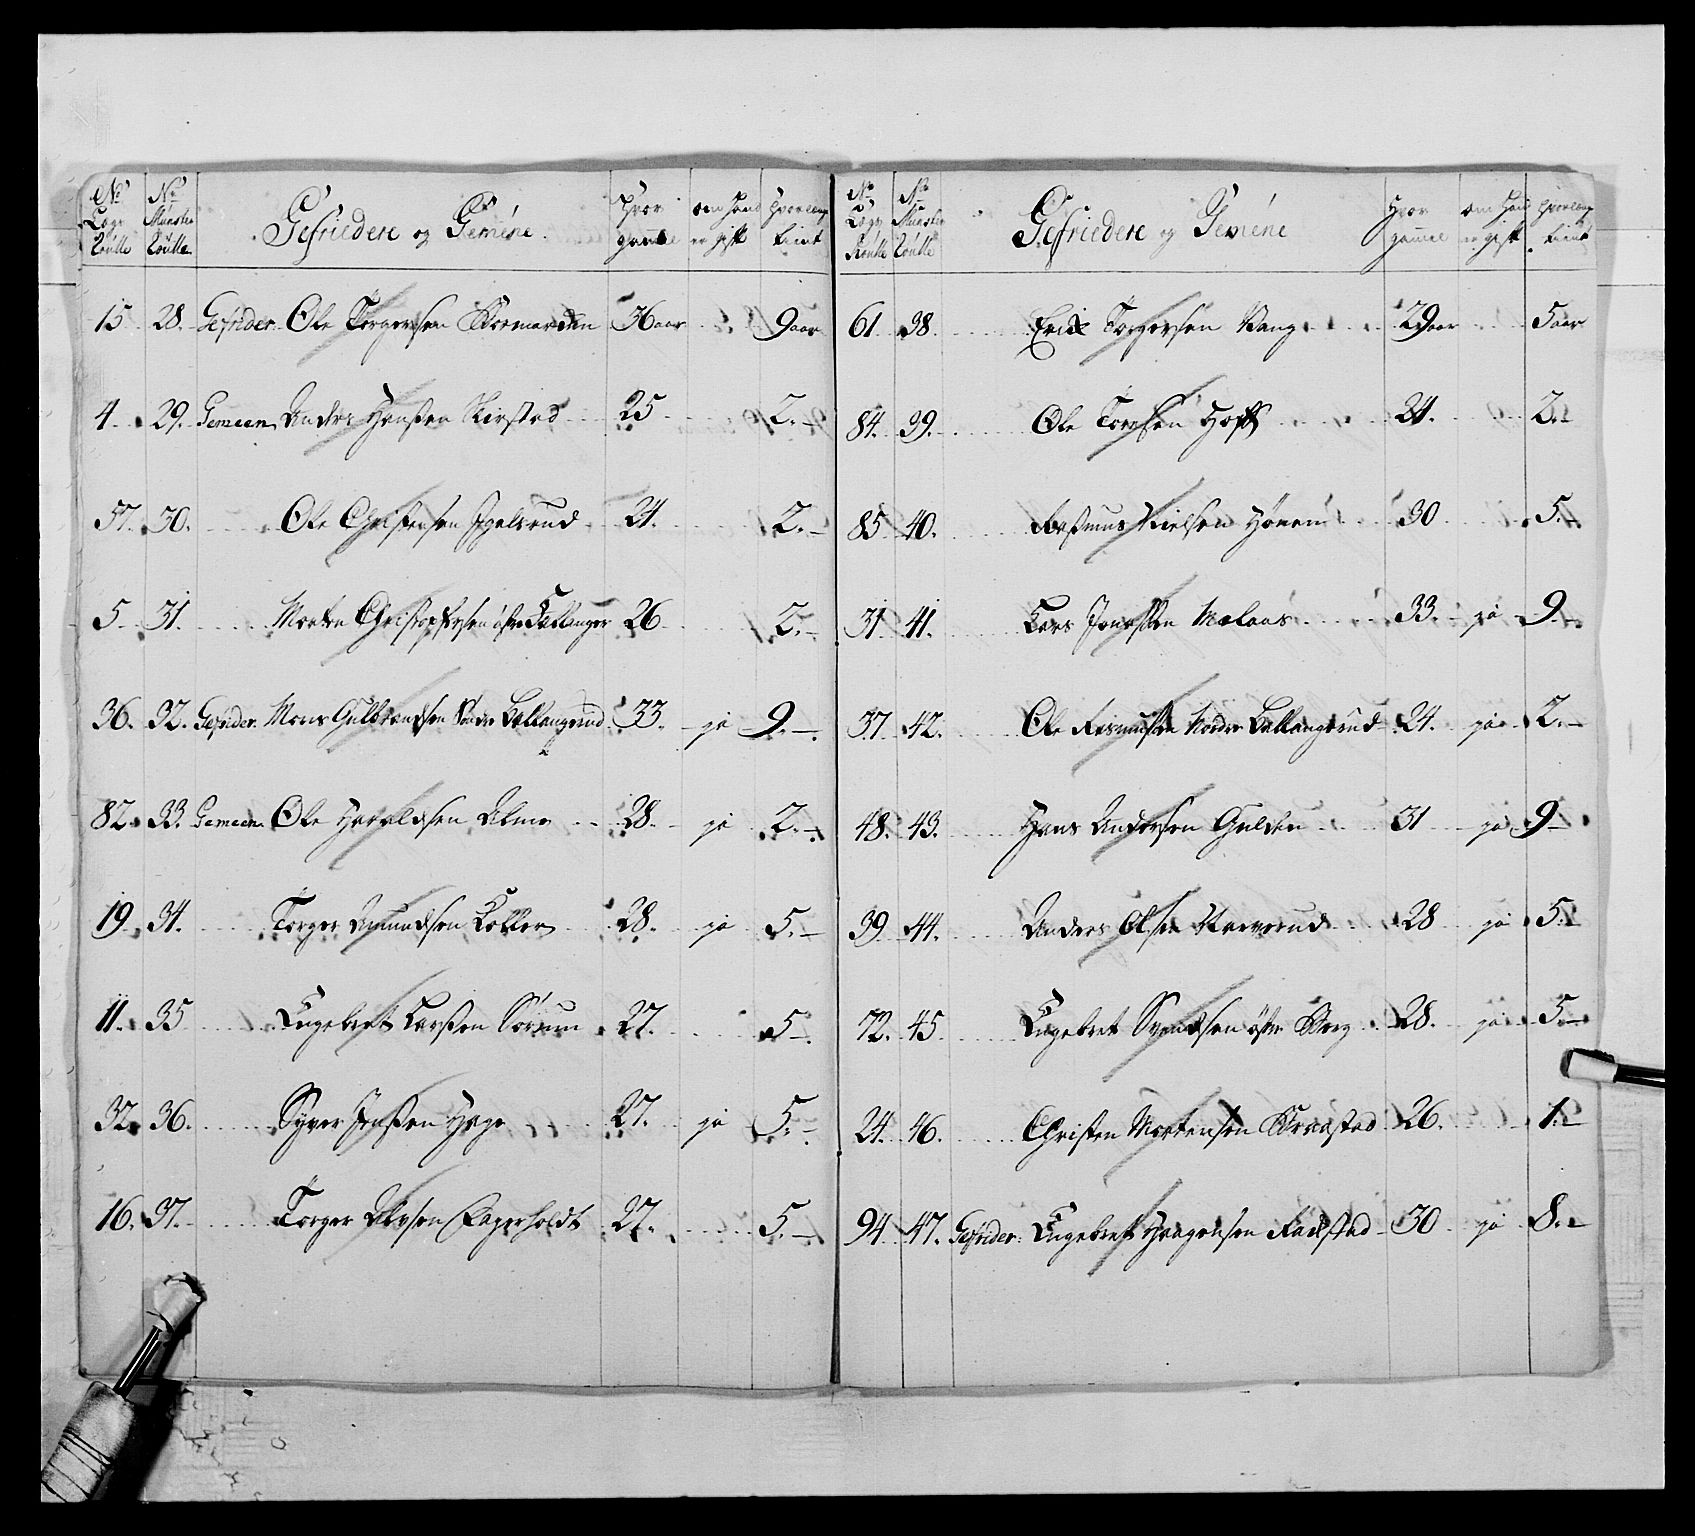 No Lage Roulle | No Münster Roulle | Gefriedere og Gemene | Hvor gammel | om hand er gift | hvor leng tient
15 28. Gefrider Ole Torgersen 36 aar 9 aar
4 29. Gemeen Anders Hanssen Kirstad 25 2.
57. 30. Ole Christensen Igelsrud 24. 2.
5 31. Morten Christophersen østre 26 2.
36. 32. Gefrider Mons Gulbrandsen Søndre Ballangrud 33. ja 9.
82. 33. Gemeen Ole Haraldsen Alm 28. ja 2.
19 34. Torger Amundsen 28. ja 5.
11. 35 Engebret Larssen Sørum 27. 5.
32. 36. Syver Jenssen Hage 27. ja 5.
16. 37. Torger Fagerholdt 27. 5.
No Lage Roulle | No Münster Roulle | Gefriedere og Gemene | Hvor gammel | om hand er gift | hvor leng tient
61 38 Erik Torgersen Vang 29 aar 5 aar
84. 39. Ole Hoff 24. 2.
85 40. Rasmus Nielsen Hønen 30 5.
31 41. Lars 33. ja 9.
37. 42. Ole Rasmussen Nordre Ballangrud 24. ja 2.
48. 43. Hans Andersen Gulden 31 ja 9
39 44. Anders Olsen 28 ja 5.
72. 45 Engebret Svendsen østre Berg 28. ja 5.
24. 46. Christen Mortensen 26. 1.
94. 47. Gefrider Engebret Haagensen 30 ja 8.